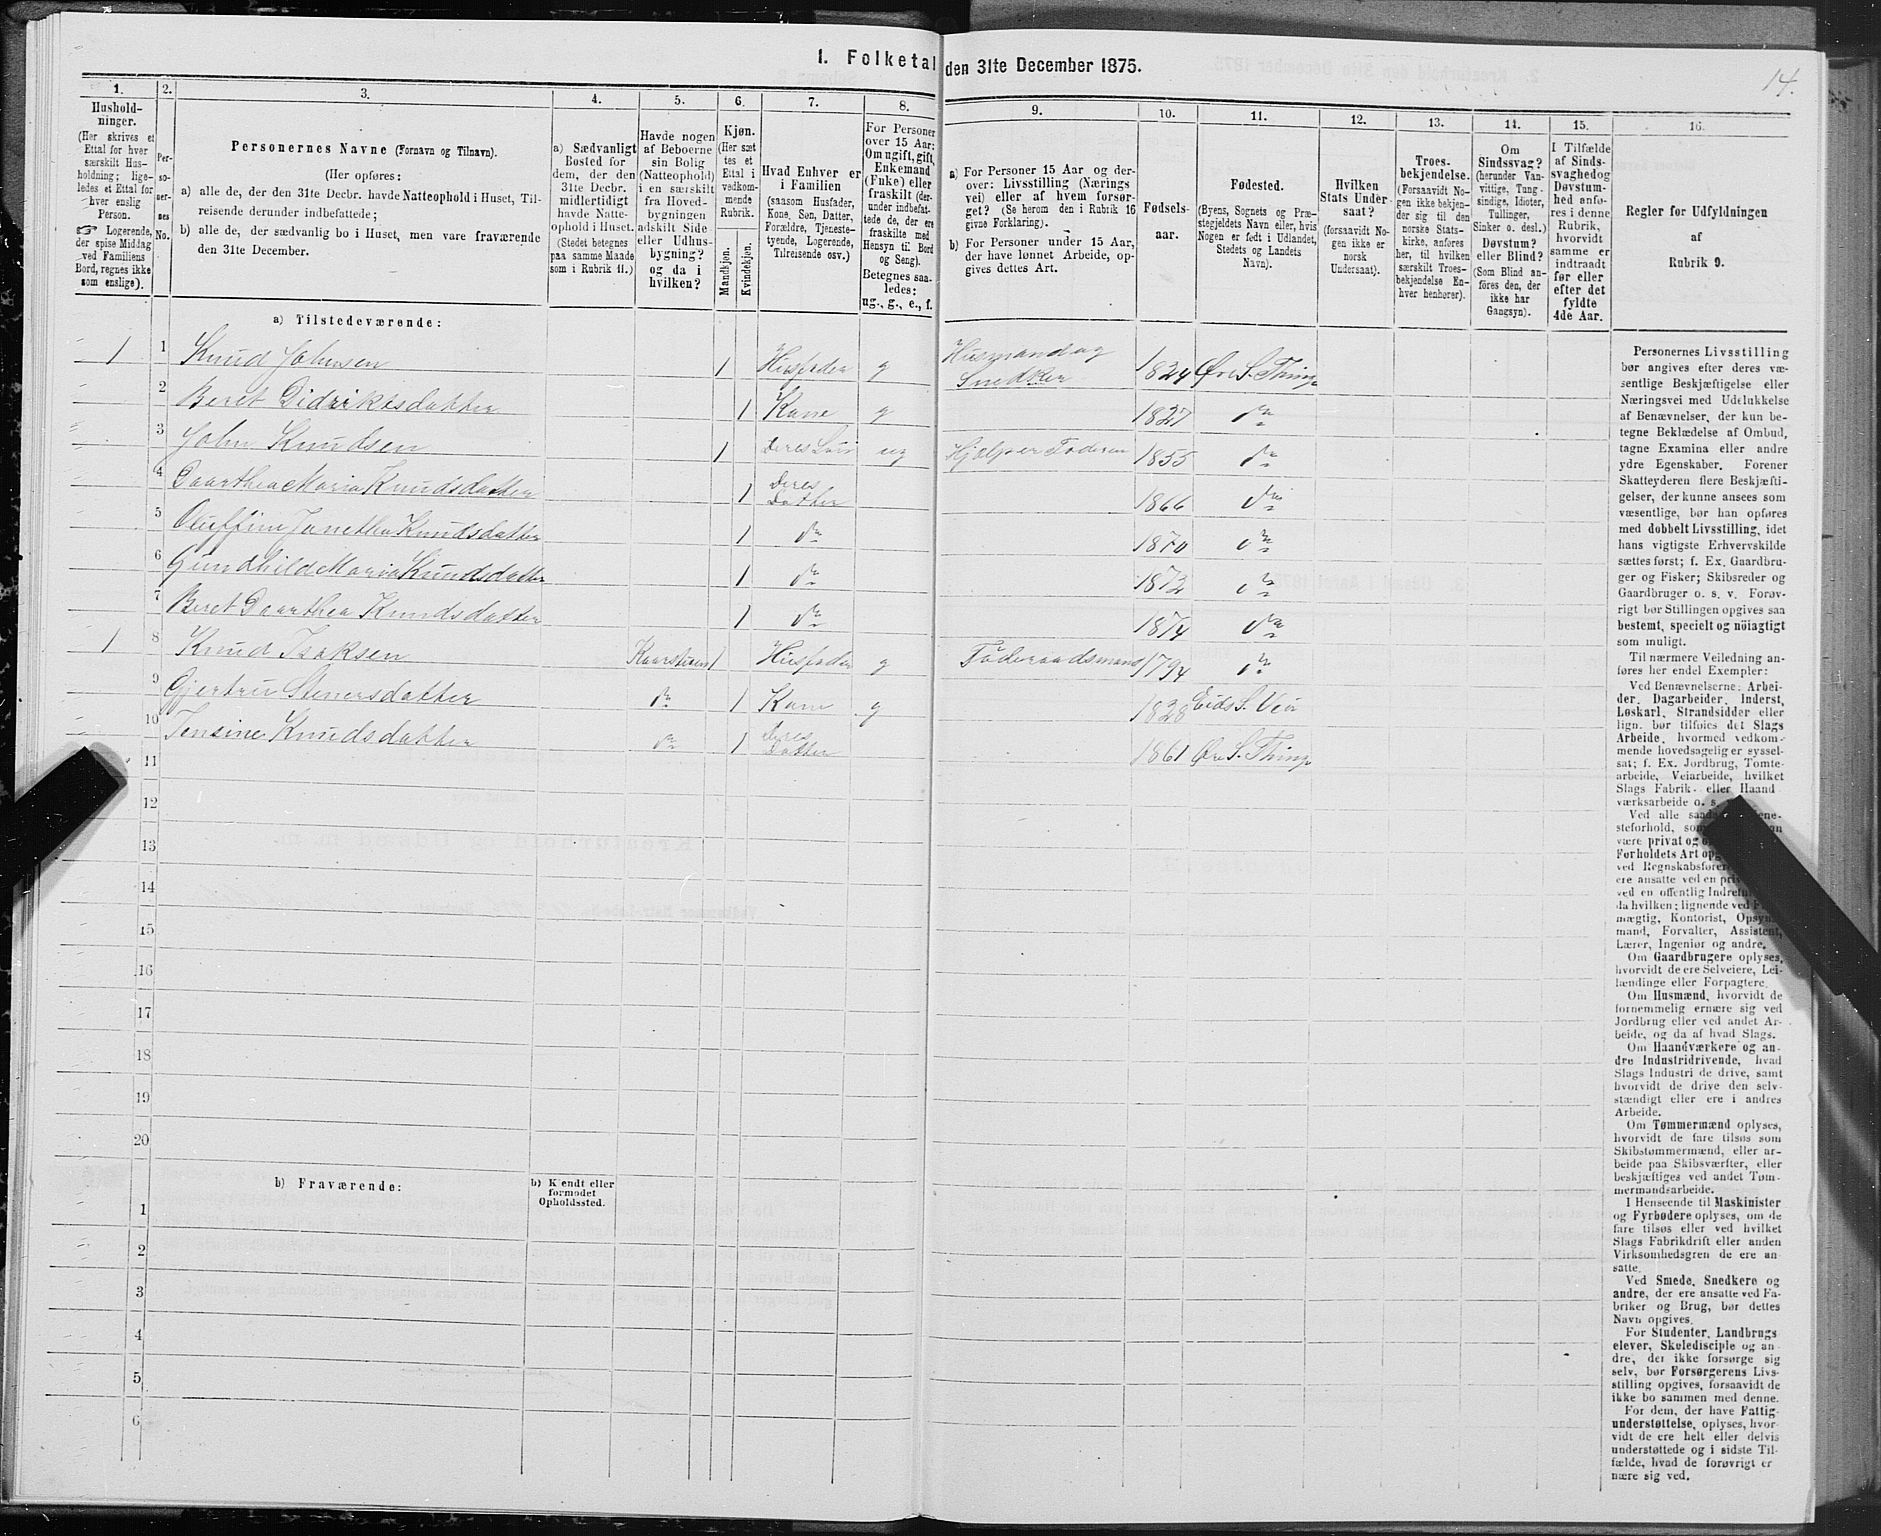 1. Folketal den 31te December 1875.
14.
1.
Hushold-
ninger.
(Her skrives et
Ettal for hver
særskilt Hus-
holdning; lige-
ledes et Ettal for
hver enslig
Person.
☞ Logerende,
der spise Middag
ved Familiens
Bord, regnes ikke
som enslige).
2.
Per-
so-
ner-
nes
No.
3.
Personernes Navne (Fornavn og Tilnavn).
(Her opføres:
a) alle de, der den 31te Decbr. havde Natteophold i Huset, Til-
reisende derunder indbefattede;
b) alle de, der sædvanlig bo i Huset, men vare fraværende
den 31te December.
4.
a) Sædvanligt
Bosted for
dem, der den
31te Decbr.
midlertidigt
havde Natte-
ophold i Huset.
(Stedet betegnes
paa samme Maade
som i Rubrik 11.)
5.
Havde nogen
af Beboerne
sin Bolig
(Natteophold)
i en særskilt
fra Hoved-
bygningen
adskilt Side
eller Udhus-
bygning?
og da i
hvilken?
6.
Kjøn.
(Her sæt
tes et
Ettal i
vedkom-
mende
Rubrik.
Mandkjøn.
Kvindekjøn.
7.
Hvad Enhver er
i Familien
(saasom Husfader,
Kone, Søn, Datter,
Forældre, Tjeneste-
tyende, Logerende,
Tilreisende osv.)
8.
For Personer
over 15 Aar:
Om ugift, gift,
Enkemand
(Enke) eller
fraskilt (der-
under indbefat-
tede de, der ere
fraskilte med
Hensyn til Bord
og Seng).
Betegnes saa-
ledes:
ug., g., e., f.
9.
a) For Personer 15 Aar og der-
over: Livsstilling (Nærings
vei) eller af hvem forsør-
get? (Se herom den i Rubrik 16
givne Forklaring).
b) For Personer under 15 Aar,
der have lønnet Arbeide, op-
gives dettes Art.
10.
Fødsels-
aar.
11.
Fødested.
(Byens, Sognets og Præ-
stegjeldets Navn eller, hvis
Nogen er født i Udlandet,
Stedets og Landets
Navn).
12.
Hvilken
Stats Under-
saat?
(forsaavidt No-
gen ikke er
norsk
Undersaat).
13.
Troes-
bekjendelse.
(Forsaavidt No-
gen ikke bekjen-
der sig til den
norske Stats-
kirke, anføres
her, til hvilken
særskilt Troes-
bekjendelse En-
hver henhører).
14.
Om
Sindssvag?
(herunder Van-
vittige, Tung-
sindige, Idioter,
Tullinger,
Sinker o. desl.)
Døvstum?
eller Blind?
(Som Blind an-
føres den, der
ikke har
Gangsyn).
15.
I Tilfælde
af Sinds-
svaghed og
Døvstum-
hed anfø-
res i denne
Rubrik,
hvorvidt
samme er
indtraadt
før eller
efter det
fyldte
4de Aar.
16.
Regler for Udfyldningen
af
Rubrik 9.
a) Tilstedeværende:
1 1 Knud Johnsen 1 Husfader g Husmand og Snedker 1824 Øre S. Thing
2 Beret Didriksdatter 1 Kone g 1827 do
3 John Knudsen 1 Deres Søn ug Hjelper Faderen 1855 do
4 Daarthea Maria Knudsdatter 1 Deres Datter 1866 do
5 Oluffine Janetha Knudsdatter 1 do 1870 do
6 Gundhild Maria Knudsdatter 1 do 1872 do
7 Beret Daarthea Knudsdatter 1 do 1874 do
1 8 Knud Isaksen Kaarstuen 1 Husfader g Föderaadsmand 1794 do
9 Gjertru Stenersdatter do 1 Kone g 1828 Eids S.
10 Jensine Knudsdatter do 1 Deres Datter 1861 Øre S. Thing
11
12
13
14
15
16
17
18
19
20
b) Fraværende:
b) Kjendt eller
formodet
Opholdssted.
1
2
3
4
5
6
Personernes Livsstilling
bør angives efter deres væ-
sentlige Beskjæftigelse eller
Næringsvei med Udelukkelse
af Benævnelser, der kun be-
tegne Beklædelse af Ombud,
tagne Examina eller andre
ydre Egenskaber. Forener
Skatteyderen flere Beskjæfti-
gelser, der kunne ansees som
væsentlige, bør han opføres
med dobbelt Livsstilling, idet
hans vigtigste Erhvervskilde
sættes først; f. Ex. Gaardbru-
ger og Fisker; Skibsreder og
Gaardbruger o. s. v. Forøv-
rigt bør Stillingen opgives saa
bestemt, specielt og nöiagtigt
som muligt.
Til nærmere Veiledning an-
føres her endel Exempler:
Ved Benævnelserne: Arbei-
der, Dagarbeider, Inderst,
Løskarl, Strandsidder eller
lign. bør tilføies det Slags
Arbeide, hvormed vedkom-
mende hovedsagelig er syssel-
sat; f. Ex. Jordbrug, Tomte-
arbeide, Veiarbeide, hvilket
Slags Fabrik- eller Haand
værksarbeide o. s.
Ved alle
steforhold,
være privat og
Forholdets Art
ved Regnskabsfører
ere ansatte ved en
ved en offentlig
da hvilken; lignende ved
mægtig, Kontorist,
mand, Forvalter, Assistent,
Lærer, Ingeniør og andre.
Om Gaardbrugere oplyses,
hvorvidt de ere Selveiere, Lei-
lændinge eller Forpagtere.
Om Husmænd, hvorvidt de
fornemmelig ernære sig ved
Jordbrug eller ved andet Ar-
beide, og da af hvad Slags.
Om Haandværkere og an-
dre Industridrivende, hvad
Slags Industri de drive, samt
hvorvidt de drive den selv-
stændigt eller ere i andres
Arbeide.
Om Tømmermænd oplyses,
hvorvidt de fare tilsøs som
Skibstømmermænd, eller ar-
beide paa Skibsværfter, eller
beskjæftiges ved andet Tøm-
mermandsarbeide.
I Henseende til Maskinister
og Fyrbødere oplyses, om de
fare tilsøs eller ved hvilket
Slags Fabrikdrift eller anden
Virksomhedsgren de ere an-
satte.
Ved Smede, Snedkere og
andre, der ere ansatte ved Fa-
briker og Brug, bør dettes
Navn opgives.
For Studenter, Landbrugs
elever, Skoledisciple og an-
dre, der ikke forsørge sig
selv, bør Forsørgerens Livs-
stilling opgives, forsaavidt de
ikke bo sammen med denne.
For dem, der have Fattig-
understøttelse, oplyses, hvor-
vidt de ere helt eller delvis
understøttede og i sidste Til-
fælde, hvad de forøvrigt er
nære sig ved.